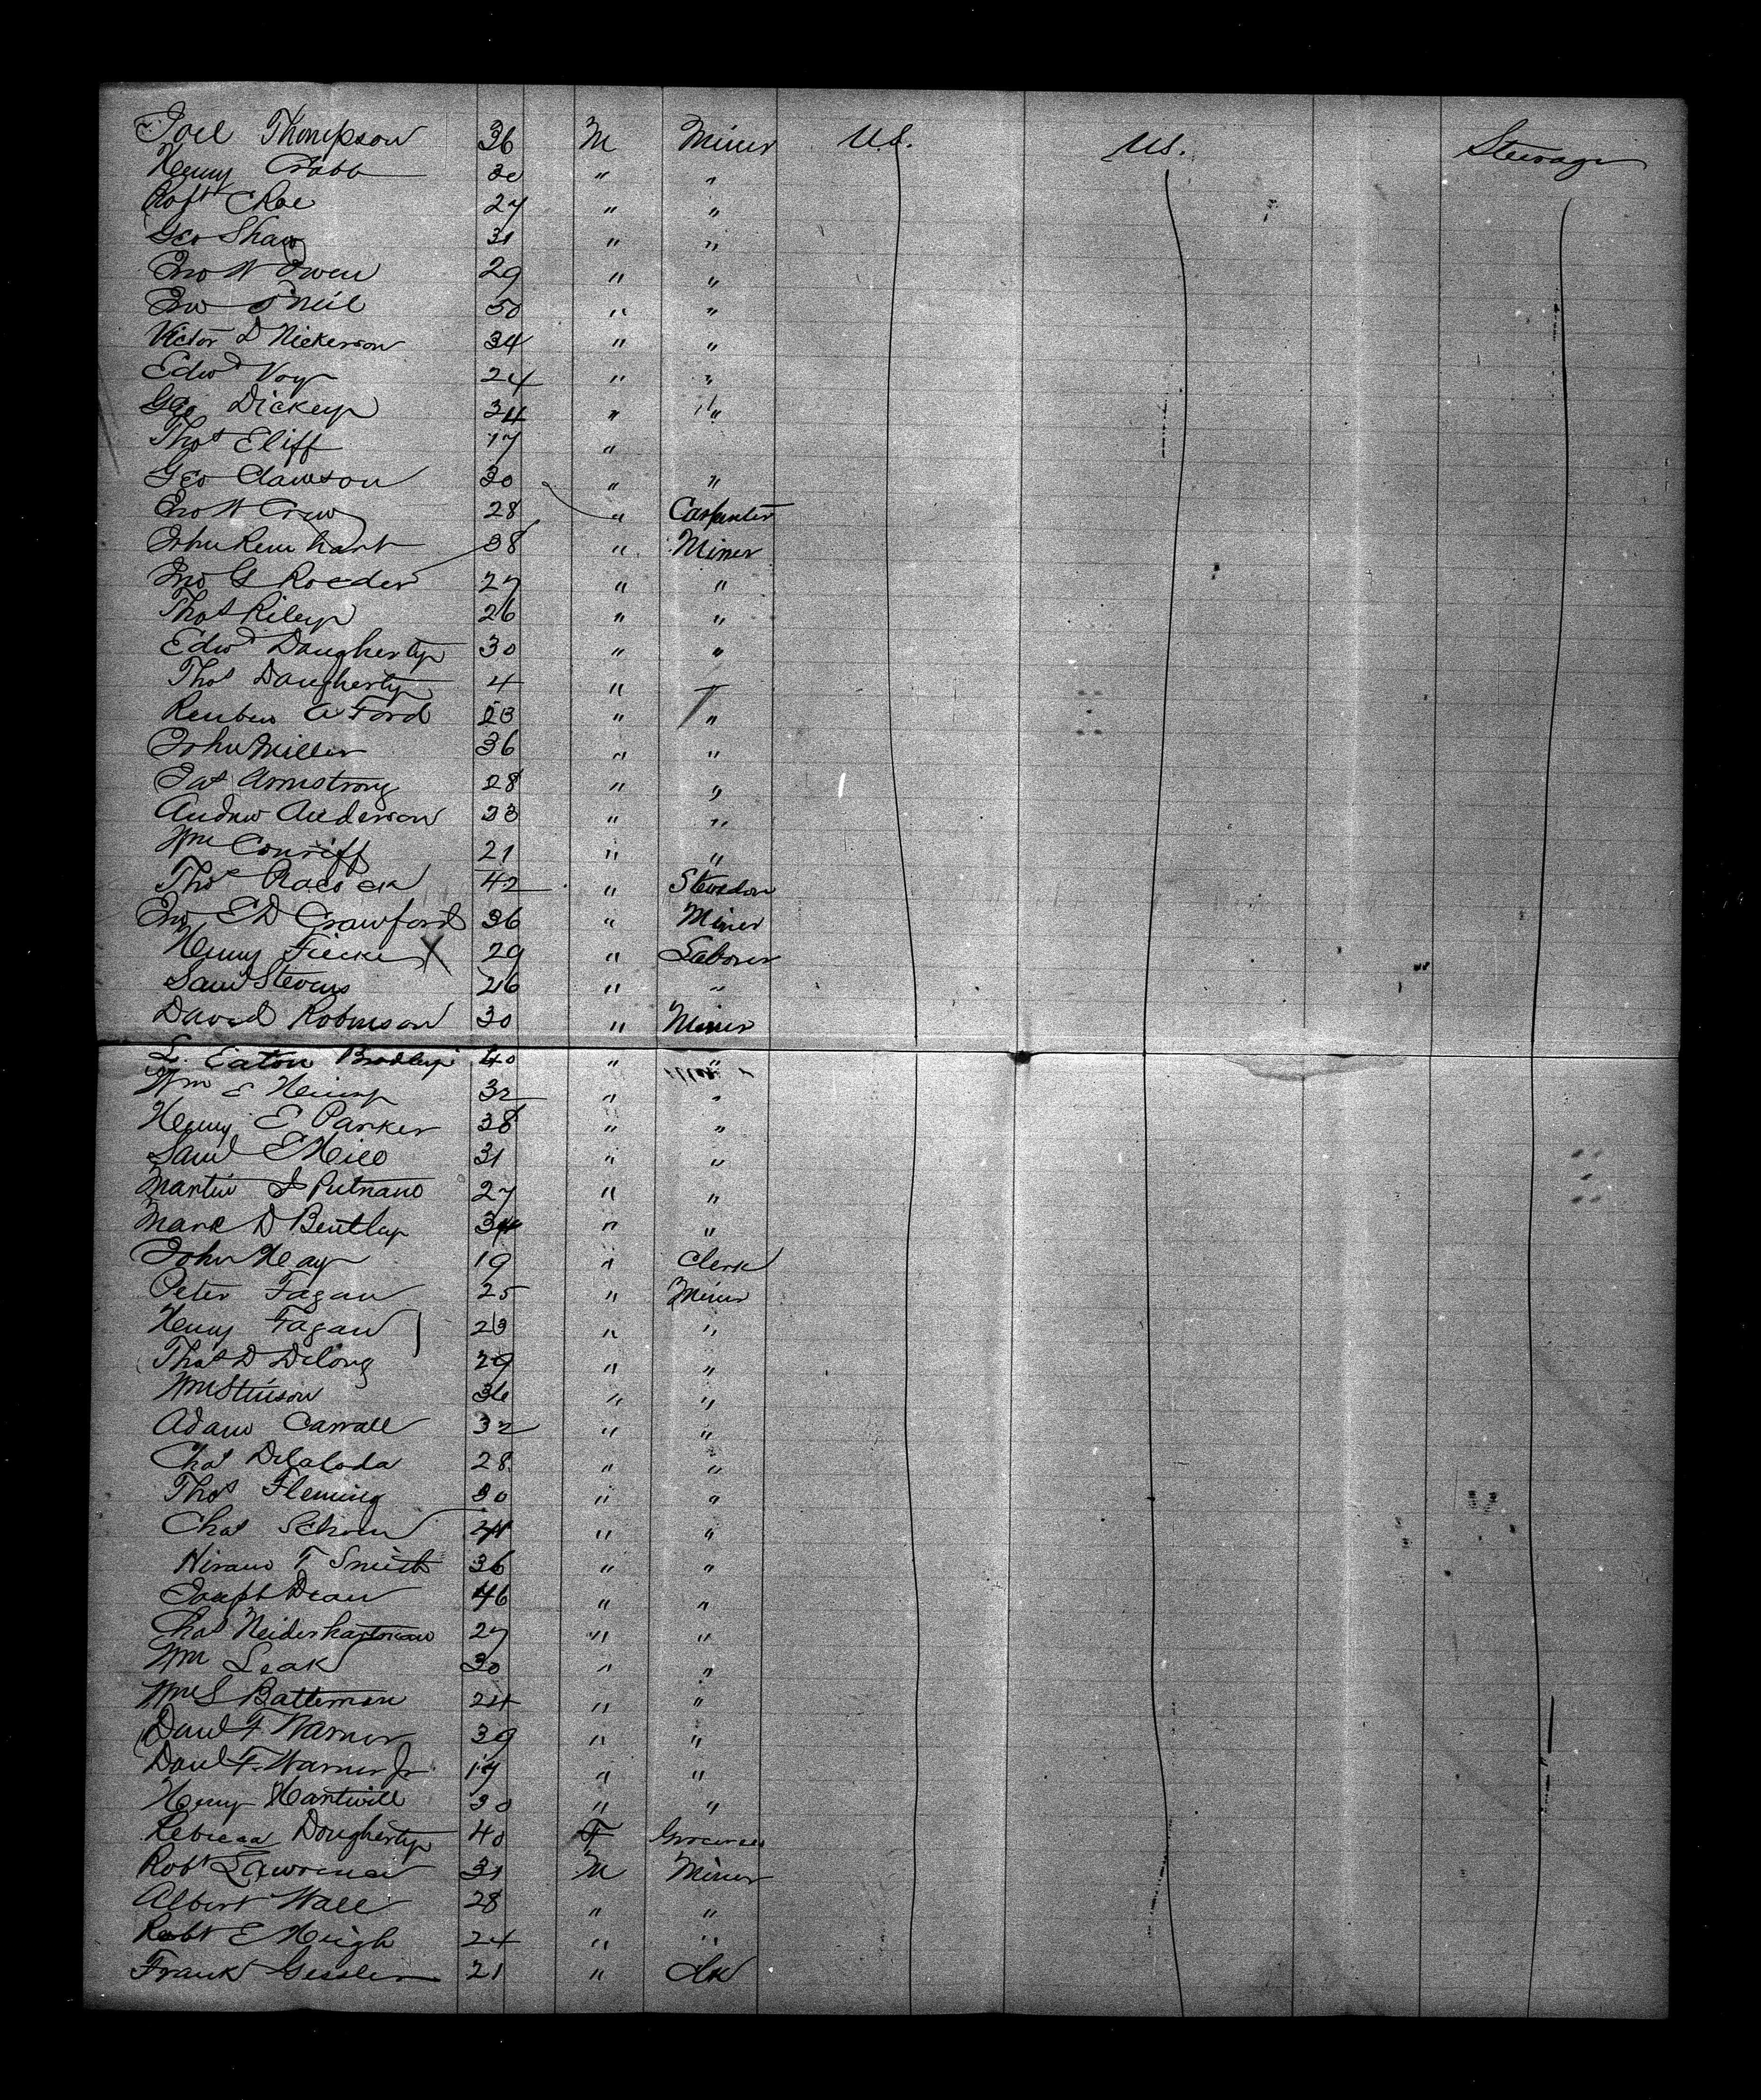 Joel Thompson 36 M Miner U.S. U.S. Steerage
Henry Crabb 30 " "
Robt Rae 27 " "
Geo Shaw 31 " "
Jno W Owen 29 " "
Jno O'Neil 50 " "
Victor D Nickerson 34 " "
Edwd Voy 24 " "
Geo Dickey 34 " "
Thos Eliff 17 "
Geo Clawson 30 " "
Jno W Crew 28 " Carpenter
John Reinhart 38 " Miner
Jno G Roeder 27 " "
Thos Riley 26 " "
Edwd Daugherty 30 " "
Thos Daugherty 4 "
Reuben A Ford 23 " "
John Miller 36 " "
Jas Armstrong 28 " "
Andrew Anderson 23 " "
Wm Conriff 21 " "
Thos 42 " Stevedore
Jno E D Crawford 36 " Miner
Henry X 29 " Laborer
Saml Stevens 26 " "
David Robinson 30 " Miner
L. Eaton Bradley 40 " "
Wm E 32 " "
Henry E Parker 38 " "
Saml E 31 " "
Martin I Putnam 27 " "
Mark D Bentley 34 " "
John Hay 19 " Clerk
Peter Fagan 25 " Miner
Henry Fagan 23 " "
Thos D Delong 29 " "
Wm Stinson 36 " "
Adam Carrall 32 " "
Chas 28 " "
Thos Fleming 30 " "
Chas " "
Hiram T Smith 36 " "
Joseph Dean 46 " "
Chas Neiderhartman 27 " "
Wm Leak 30 " "
Wm S Batteman 24 " "
Danl F. Warner 39 " "
Danl F. Warner Jr 17 " "
Henry Hartwill 30 " "
Rebecca Dougherty 40 F
Robt Lawrence 31 M Miner
Albert Wall 28 " "
Robt E Heigh 24 " "
Frank Gessler 21 " Clk